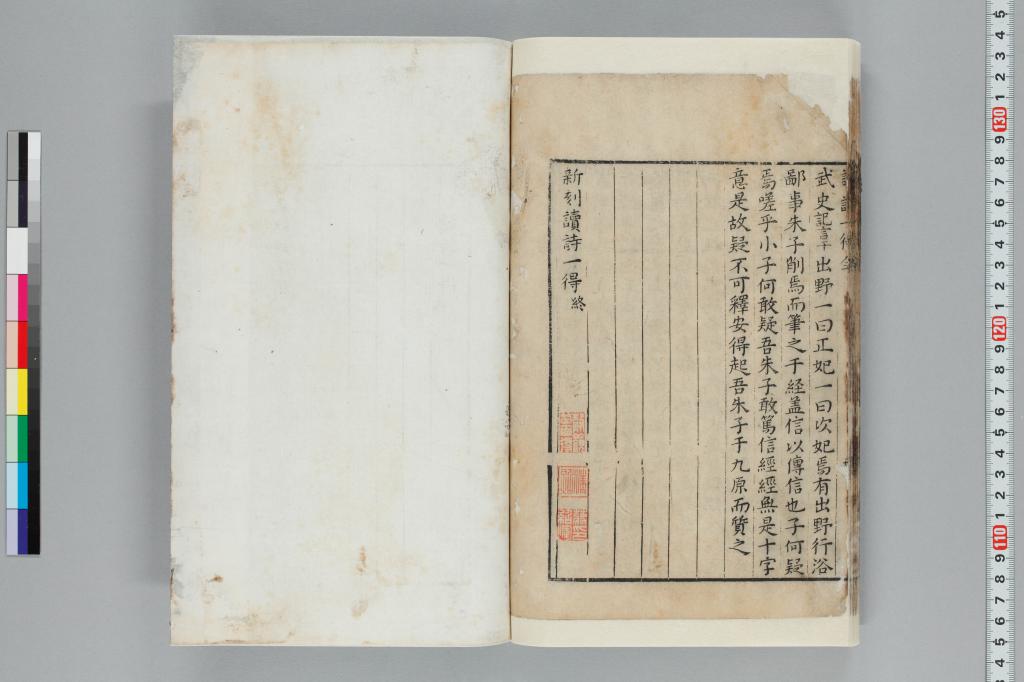 武史記言下出野一曰正妃一曰次妃焉有出野行浴
鄙事朱子削焉而筆之于経盖信以傳信也子何疑
焉嗟乎小子何敢疑吾朱子敢篤信經經無是十字
意是故疑不可釋安得起吾朱子于九原而質之
新刻讀詩一得終